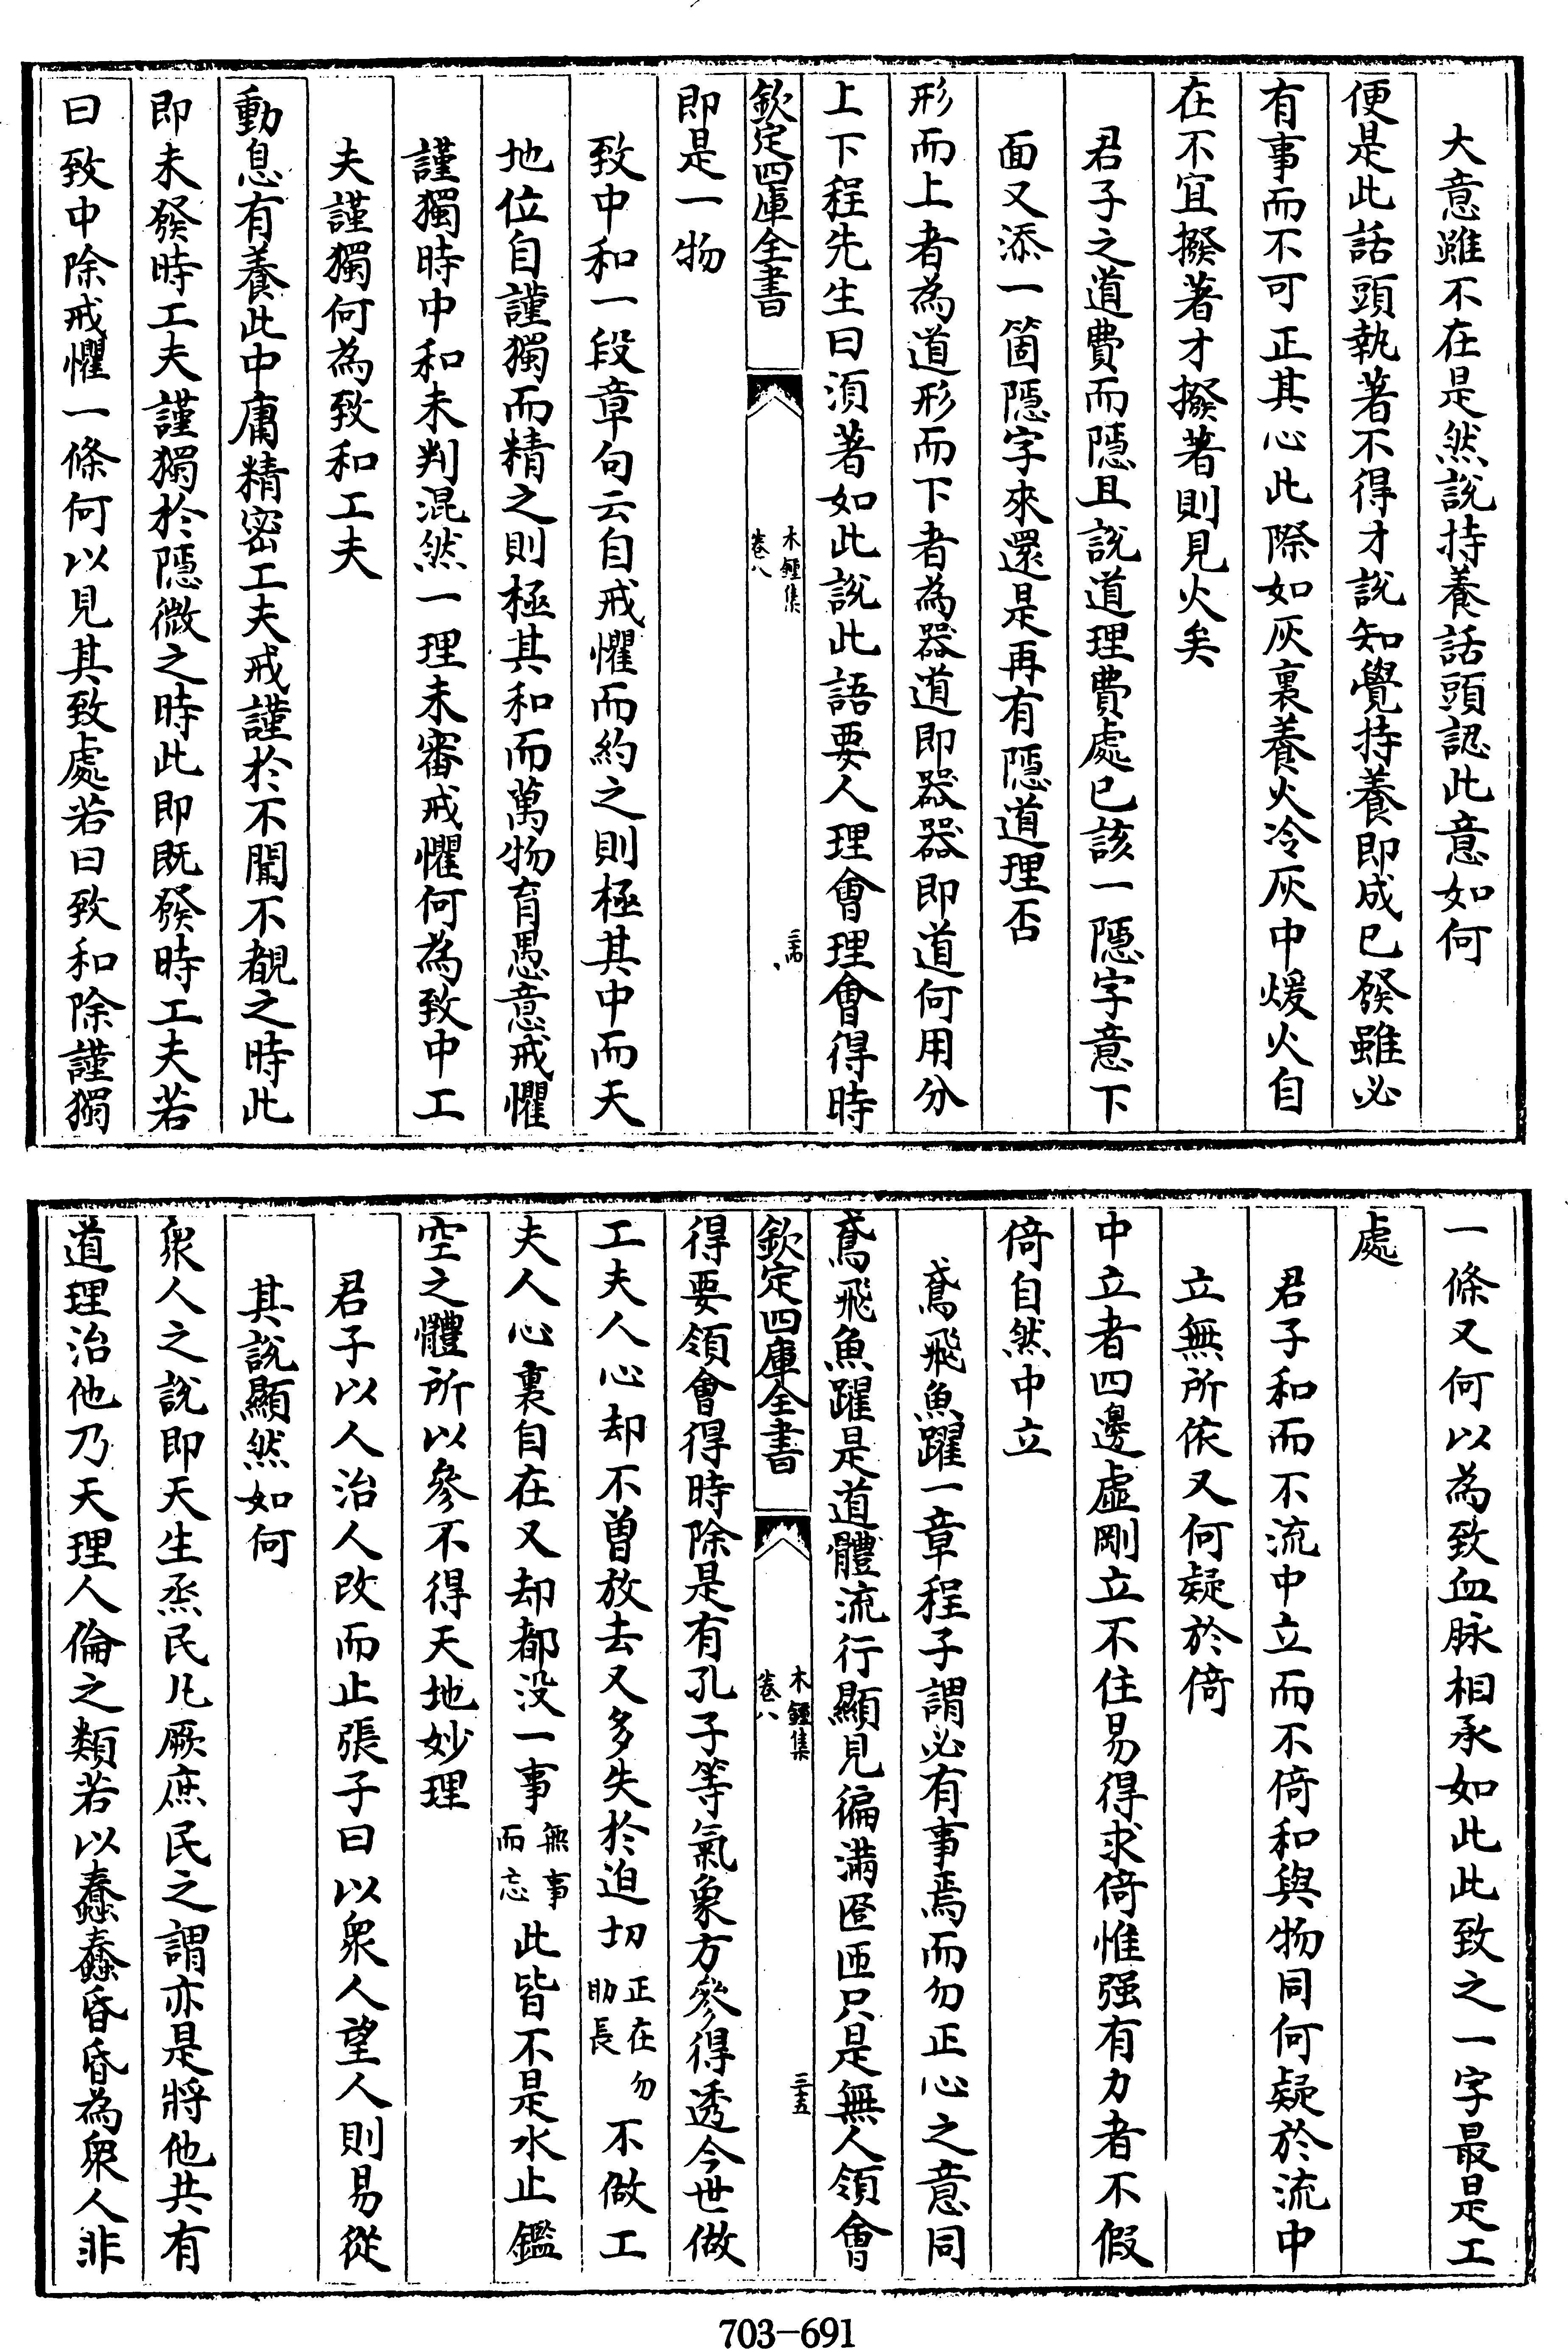 大意雖不在是然說持養話頭認此意如何
便是此話頭執著不得才說知覺持養即成已發雖必
有事而不可正其心此際如灰裏養火冷灰中煖火自
在不宜撥著才撥著則見火矣
君子之道費而隱且說道理費處已該一隱字意下
面又添一箇隱字來還是再有隱道理否
形而上者為道形而下者為器道即器器即道何用分
上下程先生曰須著如此說此語要人理會理會得時
欽定四庫全書
木鍾集
卷八
三四
即是一物
致中和一段章句云自戒懼而約之則極其中而天
地位自謹獨而精之則極其和而萬物育愚意戒懼
謹獨時中和未判混然一理未審戒懼何為致中工
夫謹獨何為致和工夫
動息有養此中庸精密工夫戒謹於不聞不覩之時此
即未發時工夫謹獨於隱微之時此即既發時工夫若
曰致中除戒懼一條何以見其致處若曰致和除謹獨
一條又何以為致血脉相承如此此致之一字最是工
處
君子和而不流中立而不倚和與物同何疑於流中
立無所依又何疑於倚
中立者四邊虛剛立不住易得求倚惟强有力者不假
倚自然中立
鳶飛魚躍一章程子謂必有事焉而勿正心之意同
鳶飛魚躍是道體流行顯見徧滿匝匝只是無人領會
欽定四庫全書
木鍾集
卷八
三五
得要領會得時除是有孔子等氣象方參得透今世做
工夫人心却不曾放去又多失於迫切正在勿助長不做工
夫人心裏自在又却都沒一事無事而忘此皆不是水止鑑
空之體所以參不得天地妙理
君子以人治人改而止張子曰以衆人望人則易從
其說顯然如何
衆人之說即天生烝民凡厥庶民之謂亦是將他共有
道理治他乃天理人倫之類若以蠢蠢昏昏為衆人非
703-691